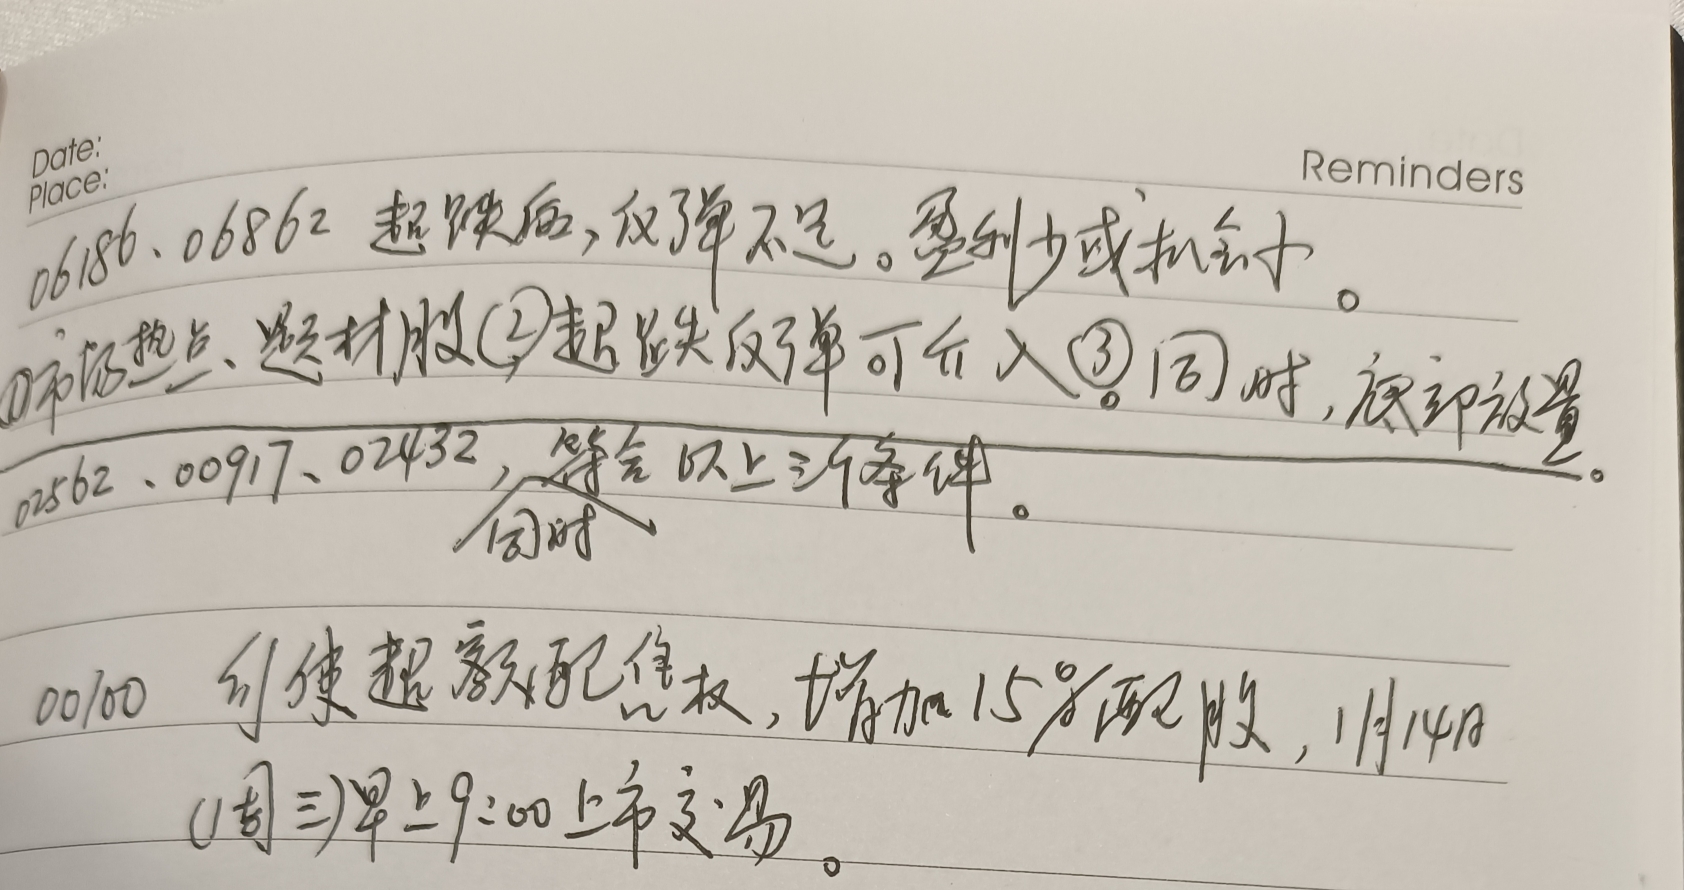 Date:
Place:
Reminders
06186、06862 超跌后,反弹不足。盈利少或机会小。
①市场热点、题材股②超跌反弹可介入③同时,底部放量。
02562、00917、02432,符合以上三个条件。
同时
00100 行使超额配售权,增加15%配股,1月14日
(周三)早上9:00上市交易。